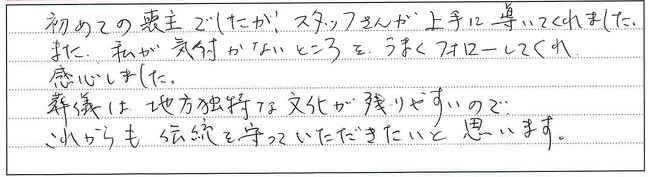 初めての喪主でしたが、スタッフさんが上手に導いてくれました。
また、私が気付かないところを、うまくフォローしてくれ
感心しました。
葬儀は地方独特な文化が残りやすいので、
これからも伝統を守っていただきたいと思います。